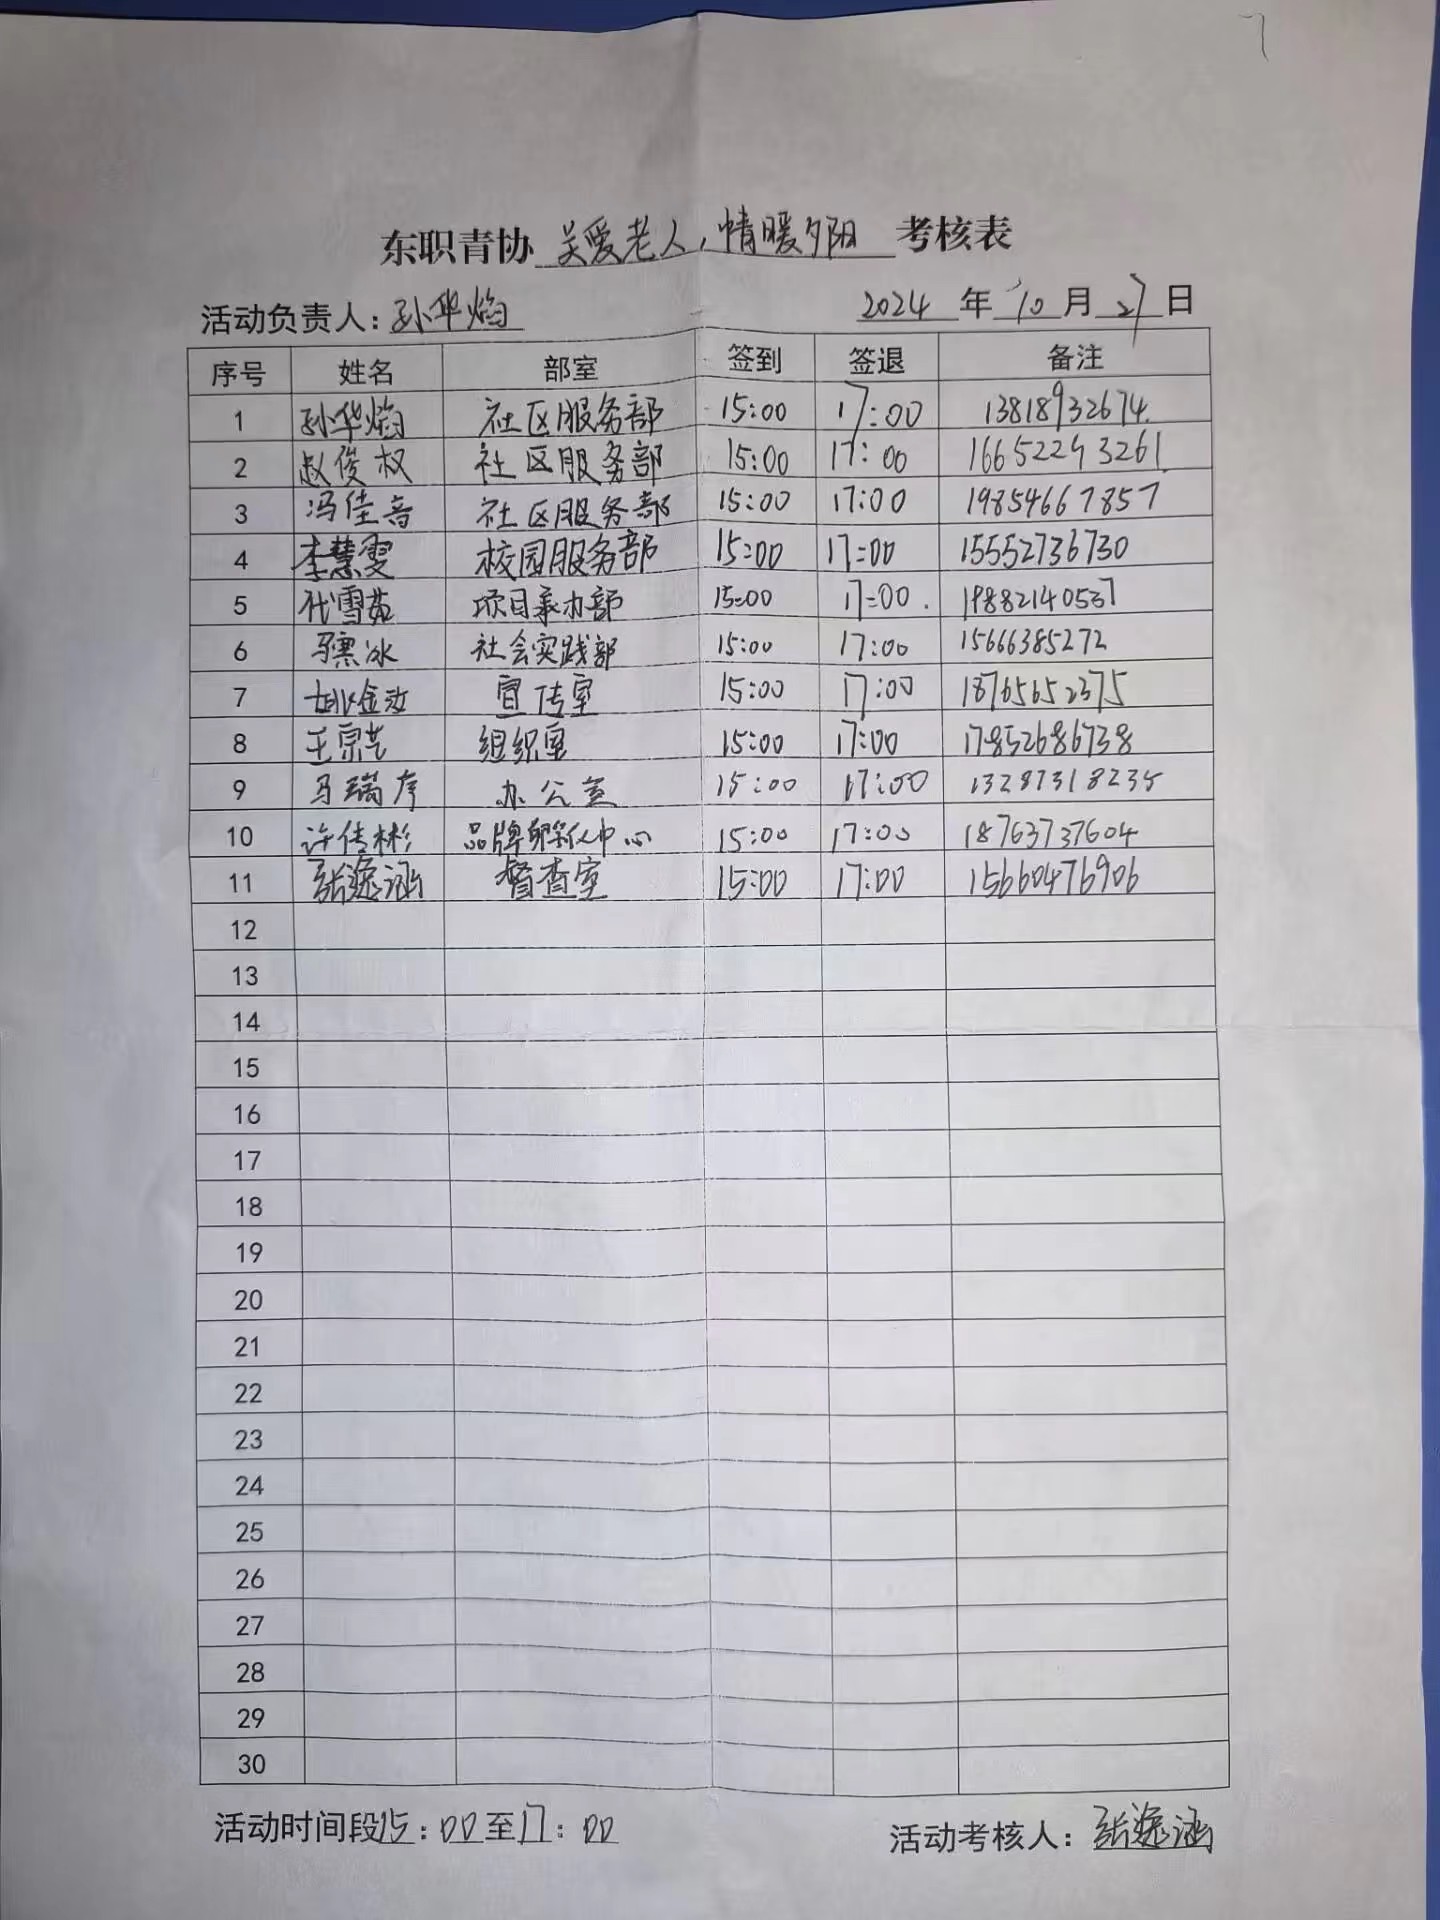 东职青协 关爱老人,情暖夕阳 考核表
活动负责人:孙华焰 2024 年 10 月 27 日
序号 姓名 部室 签到 签退 备注
1 孙华焰 社区服务部 15:00 17:00 13818932674
2 赵俊权 社区服务部 15:00 17:00 16652243261
3 冯佳音 社区服务部 15:00 17:00 19854667857
4 李慧雯 校园服务部 15:00 17:00 15552736730
5 代雪茹 项目承办部 15:00 17:00 19882140537
6 马寒冰 社会实践部 15:00 17:00 15666385272
7 姚金汝 宣传室 15:00 17:00 18765652375
8 王宗芸 组织室 15:00 17:00 17852686738
9 马瑞 办公室 15:00 17:00 13287318235
10 许传彬 品牌孵化中心 15:00 17:00 18763737604
11 张逸涵 督查室 15:00 17:00 15660476906
12
13
14
15
16
17
18
19
20
21
22
23
24
25
26
27
28
29
30
活动时间段15:00至17:00 活动考核人:张逸涵